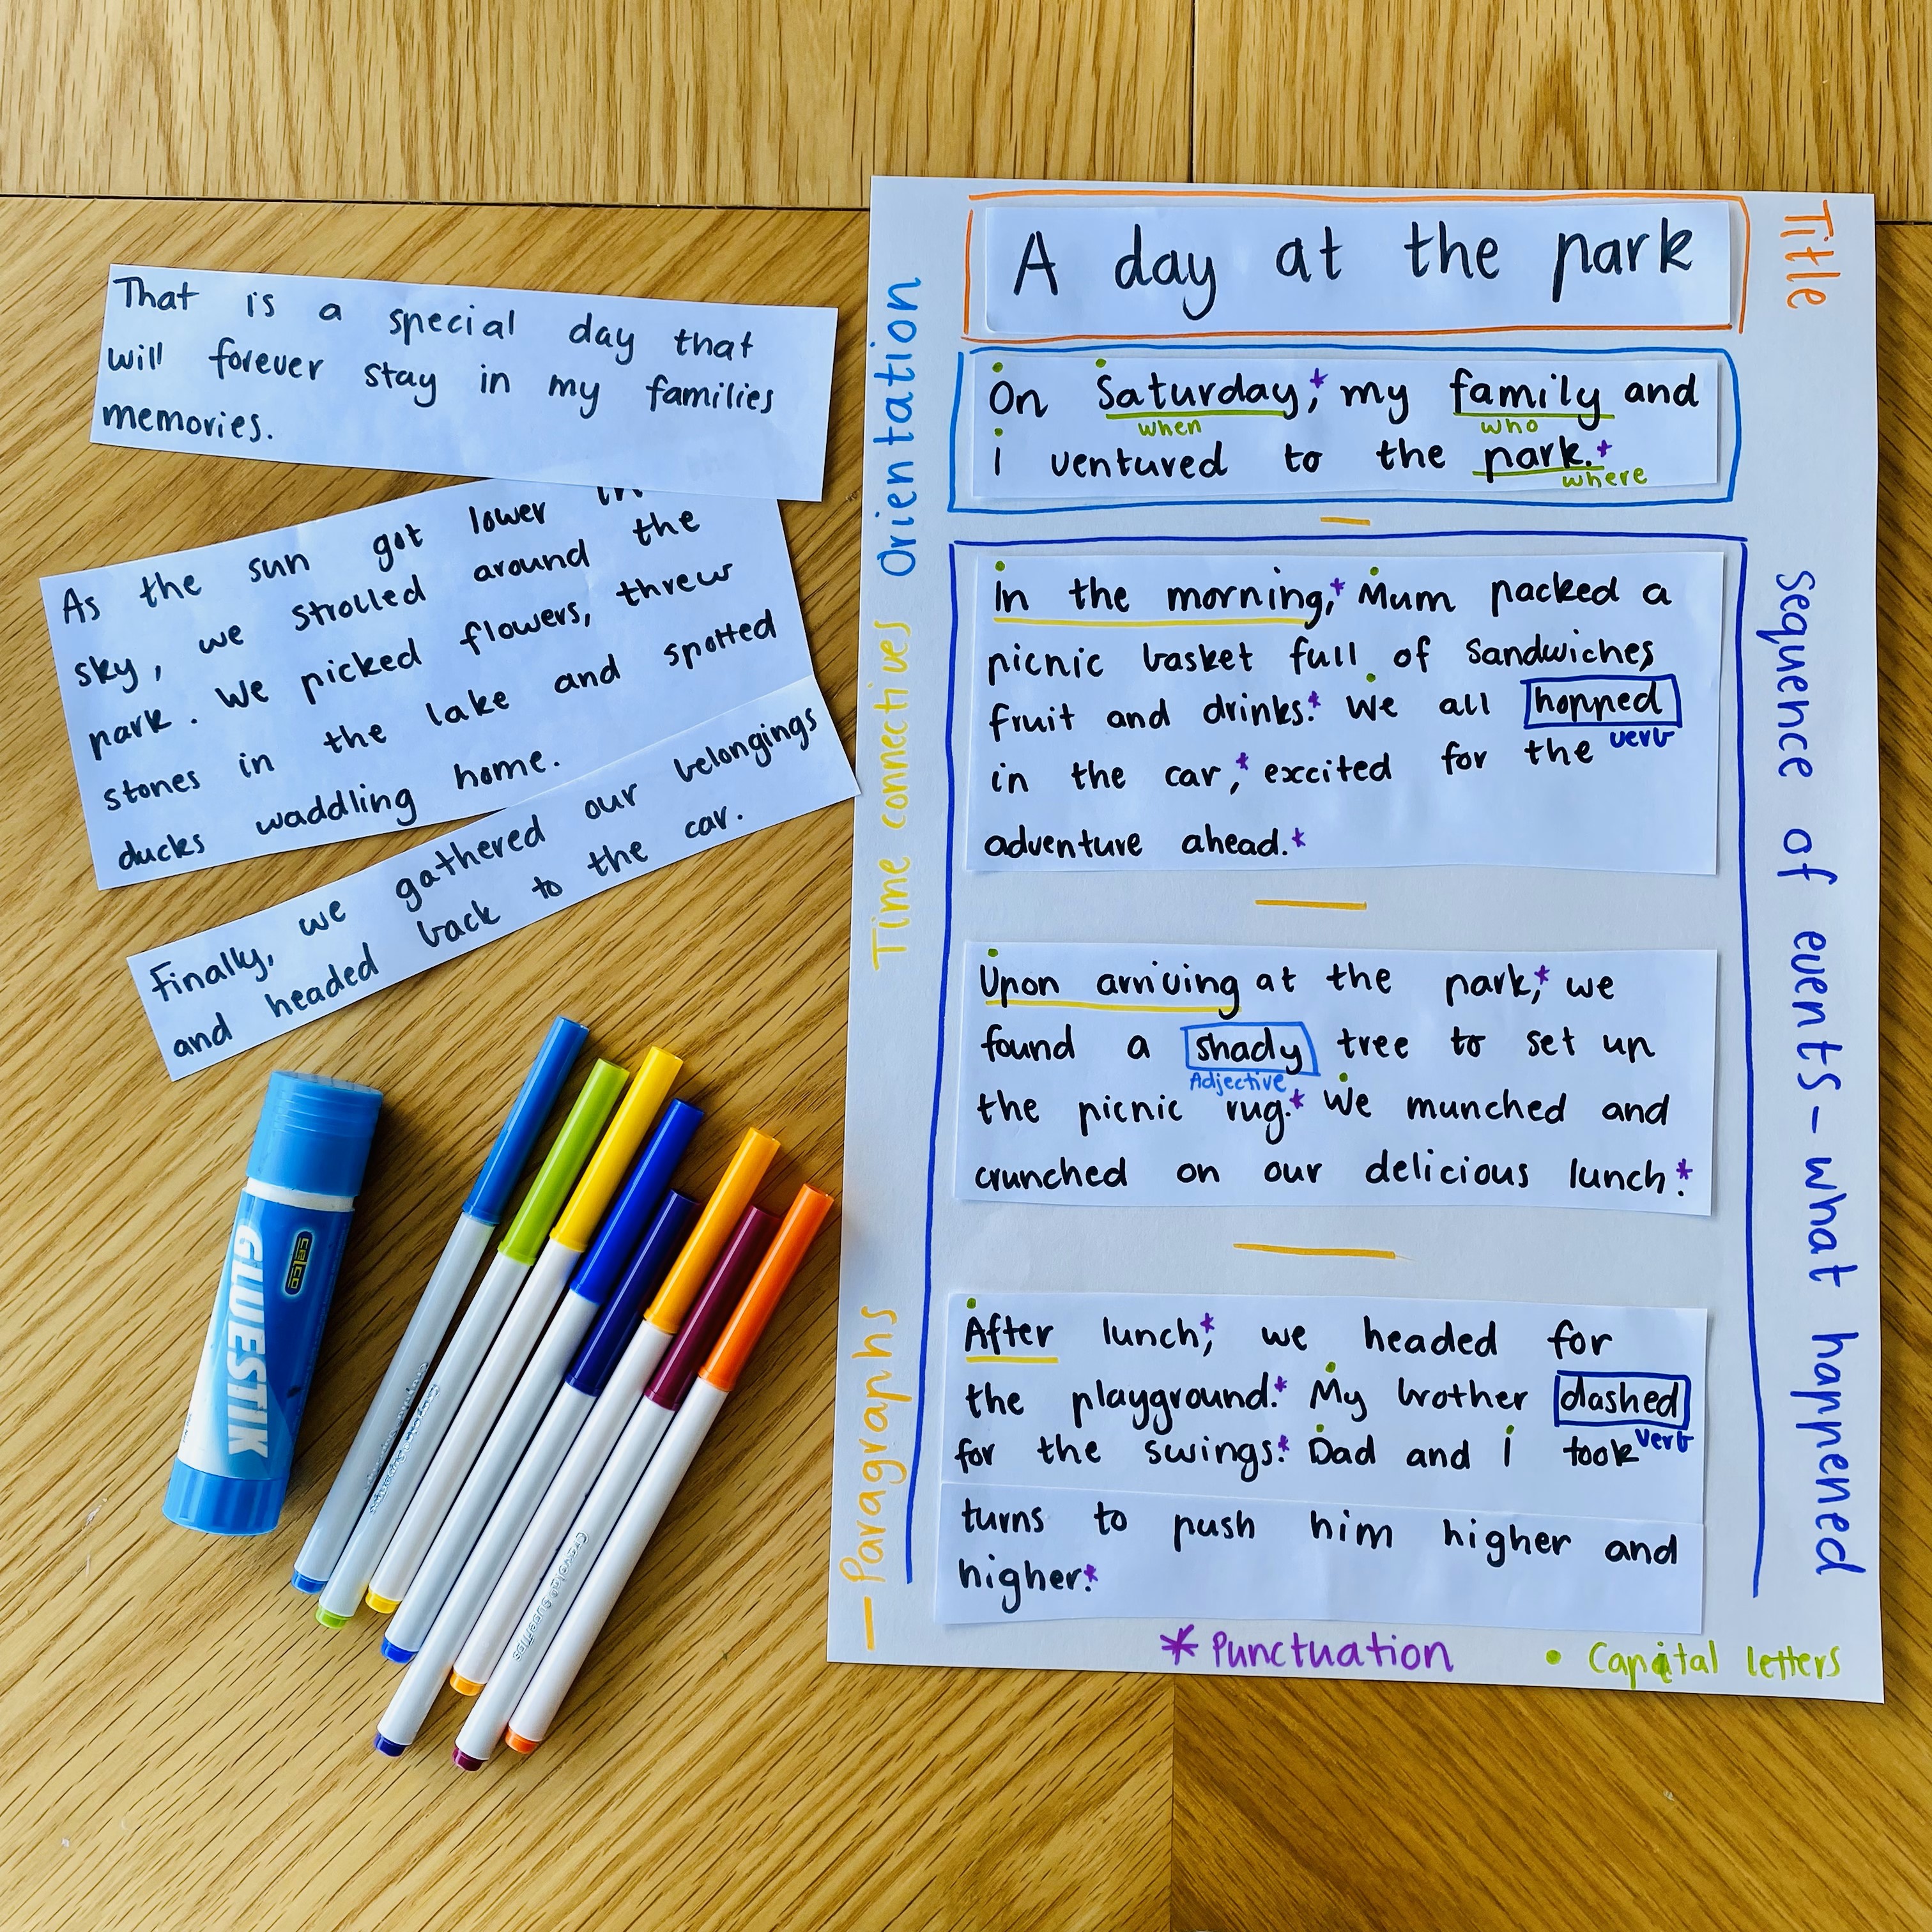 That is a special day that
will forever stay in my families
memories.
As the sun got lower in
sky, we strolled around the
park. We picked flowers, threw
stones in the lake and spotted
ducks waddling home.
Finally, we gathered our belongings
and headed back to the car.
celco
GLUESTIK
Crayola SuperTips
Title
A day at the park
Orientation
On Saturday,* my family and
when who
i ventured to the park.*
where
Time connectives
sequence of events - what happened
In the morning,* Mum packed a
picnic basket full of sandwiches
fruit and drinks.* We all hopped
verb
in the car,* excited for the
adventure ahead.*
Upon arriving at the park,* we
found a shady tree to set up
Adjective
the picnic rug.* We munched and
crunched on our delicious lunch.*
— Paragraphs
After lunch,* we headed for
the playground.* My brother dashed
verb
for the swings.* Dad and i took
turns to push him higher and
higher.*
* Punctuation
• Capital letters